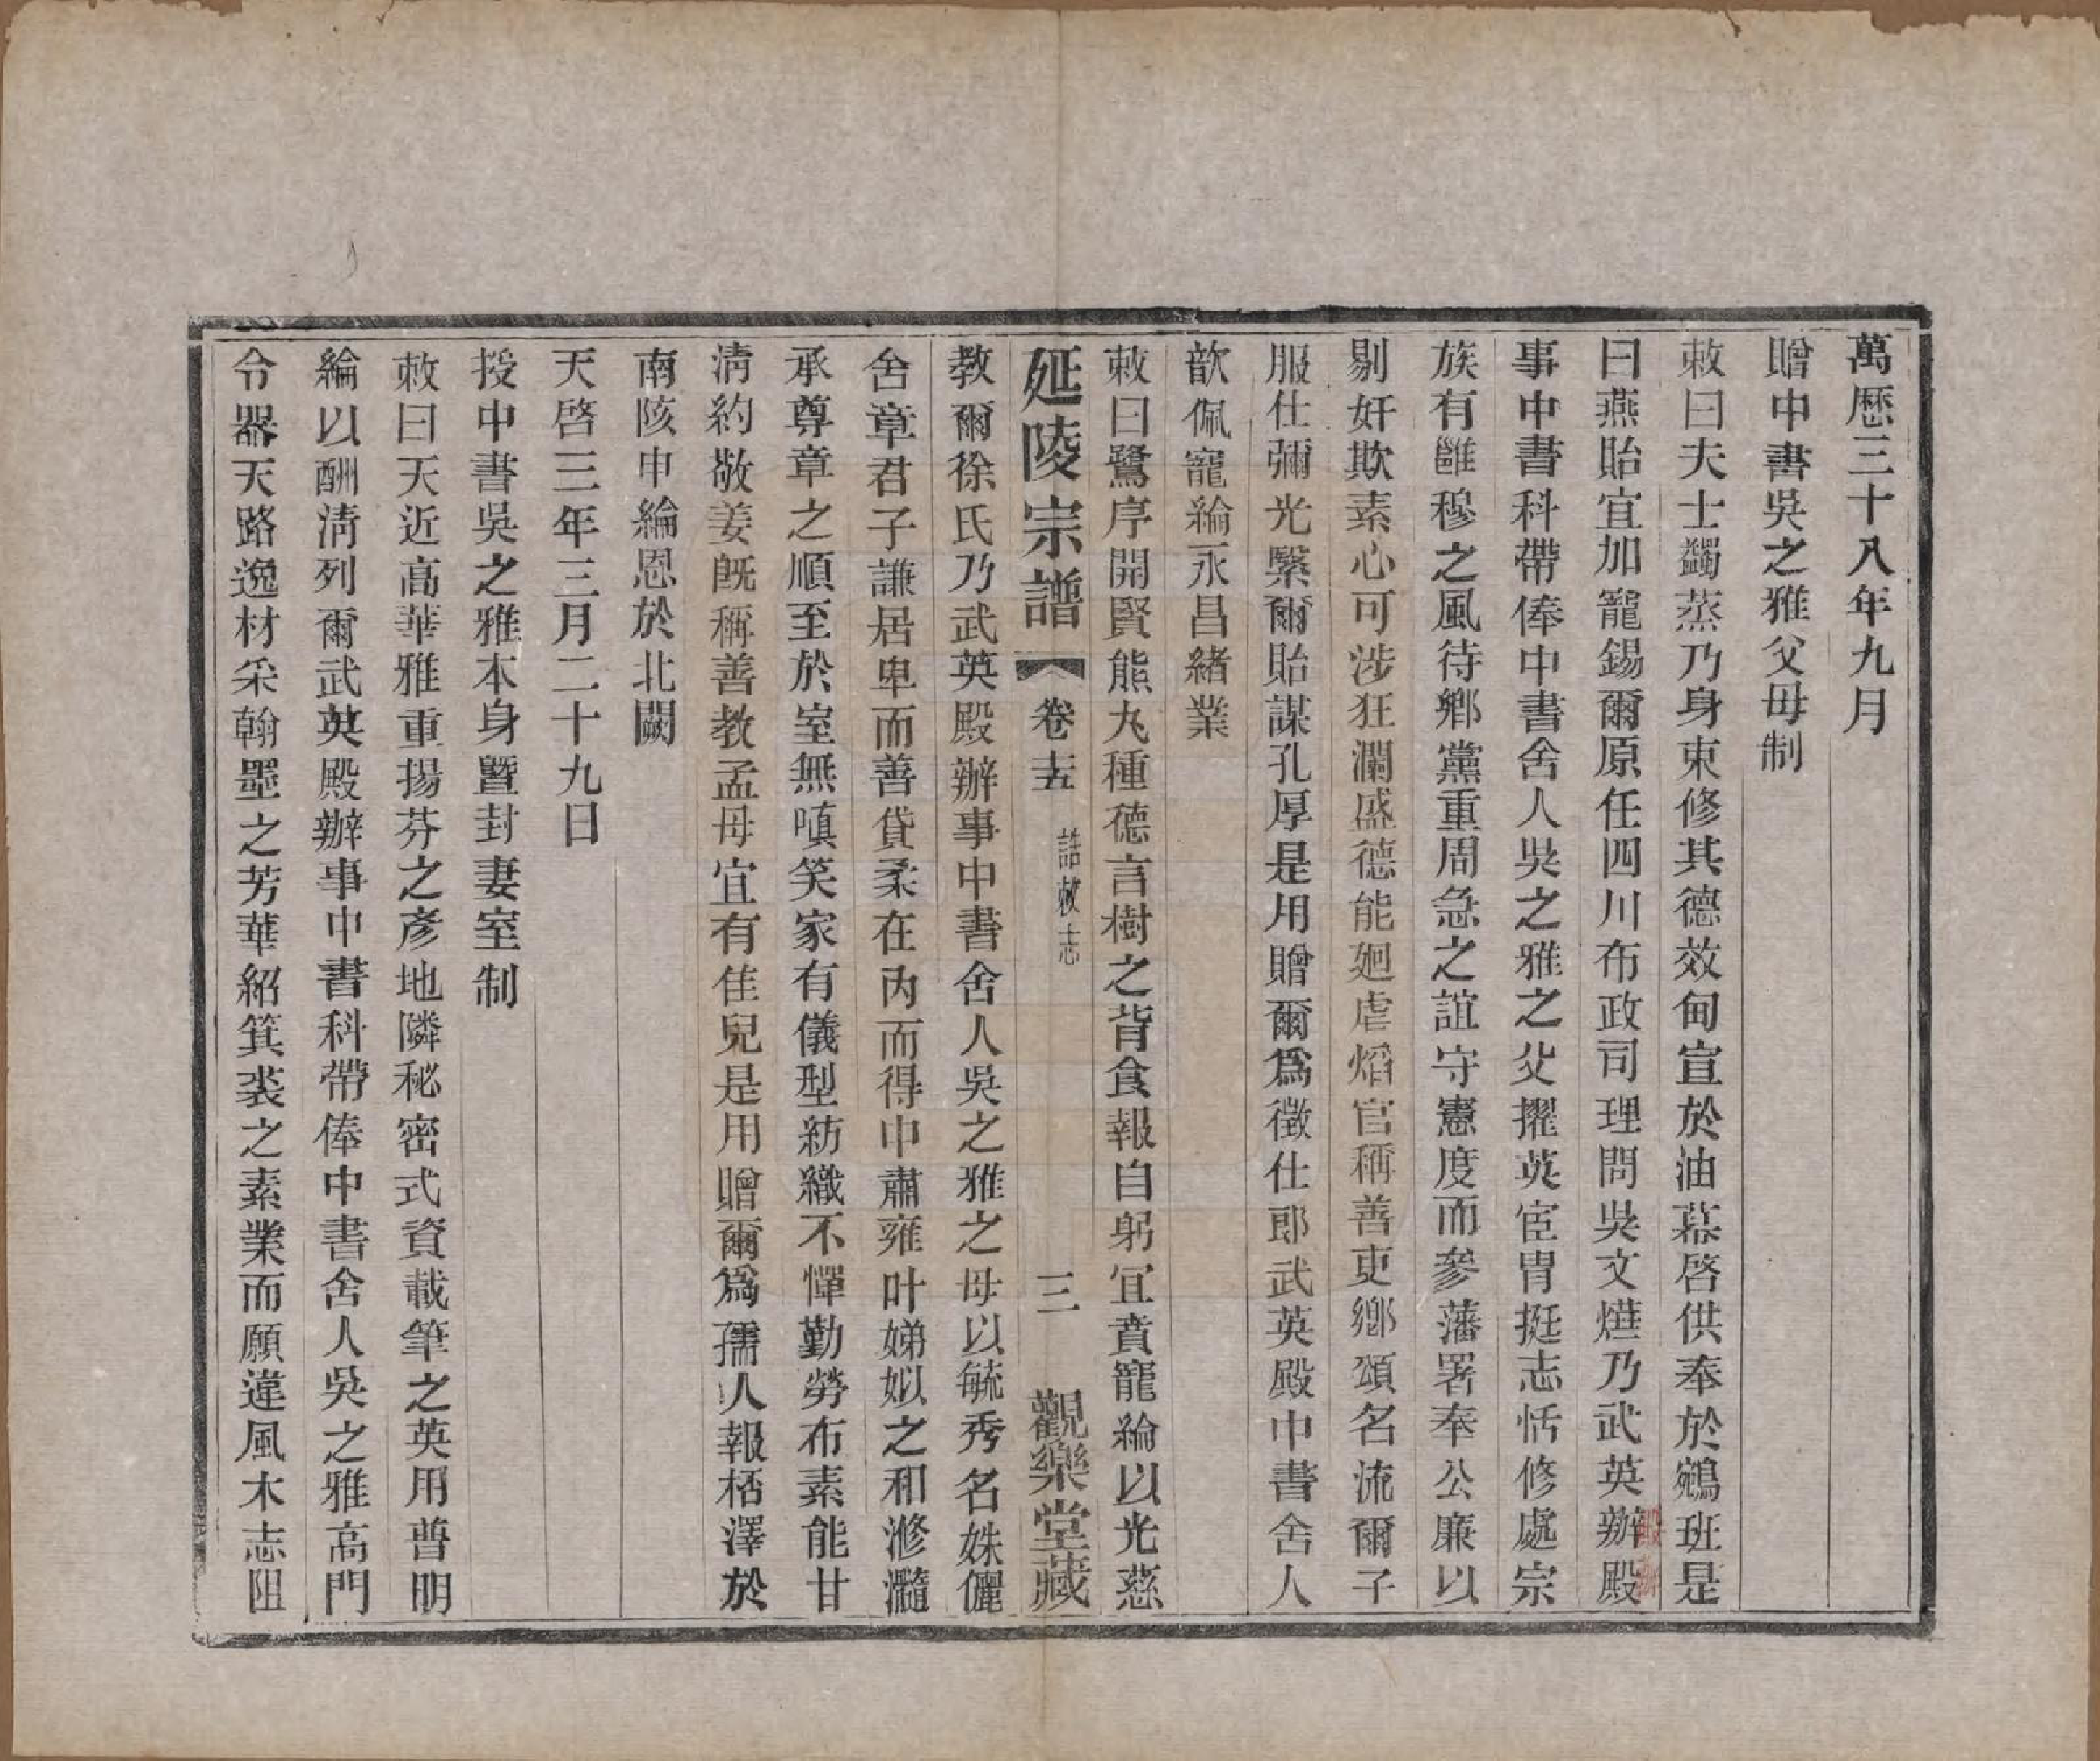 萬歷三十八年九月
贈中書吳之雅父母制
敕曰夫士蠲蒸乃身束修其德效甸宣於油幕啓供奉於鵷班是
曰燕貽宜加寵錫爾原任四川布政司理問吳文爗乃武英辦殿
事中書科帶俸中書舍人吳之雅之父擢英宦胄挺志恬修處宗
族有雝穆之風待鄉黨重周急之誼守憲度而參藩署奉公廉以
剔奸欺素心可涉狂瀾盛德能廻虐熖官稱善吏鄉頌名流爾子
服仕彌光繄爾貽謀孔厚是用贈爾爲徵仕郎武英殿中書舍人
歆佩寵綸永昌緒業
敕曰鷺序開賢熊丸種德言樹之背食報自躬宜賁寵綸以光慈
延陵宗譜
卷十五
誥敕志
三
觀樂堂藏
教爾徐氏乃武英殿辦事中書舍人吳之雅之母以毓秀名姝儷
舍章君子謙居卑而善貸柔在內而得中肅雍叶娣姒之和滫瀡
承尊章之順至於室無嗔笑家有儀型紡織不憚勤勞布素能甘
淸約敬姜旣稱善教孟母宜有佳兒是用贈爾爲孺人報桮澤於
南陔申綸恩於北闕
天啓三年三月二十九日
授中書吳之雅本身曁封妻室制
敕曰天近高華雅重揚芬之彥地隣秘密式資載筆之英用普明
綸以酬淸列爾武英殿辦事中書科帶俸中書舍人吳之雅高門
令器天路逸材采翰墨之芳華紹箕裘之素業而願違風木志阻